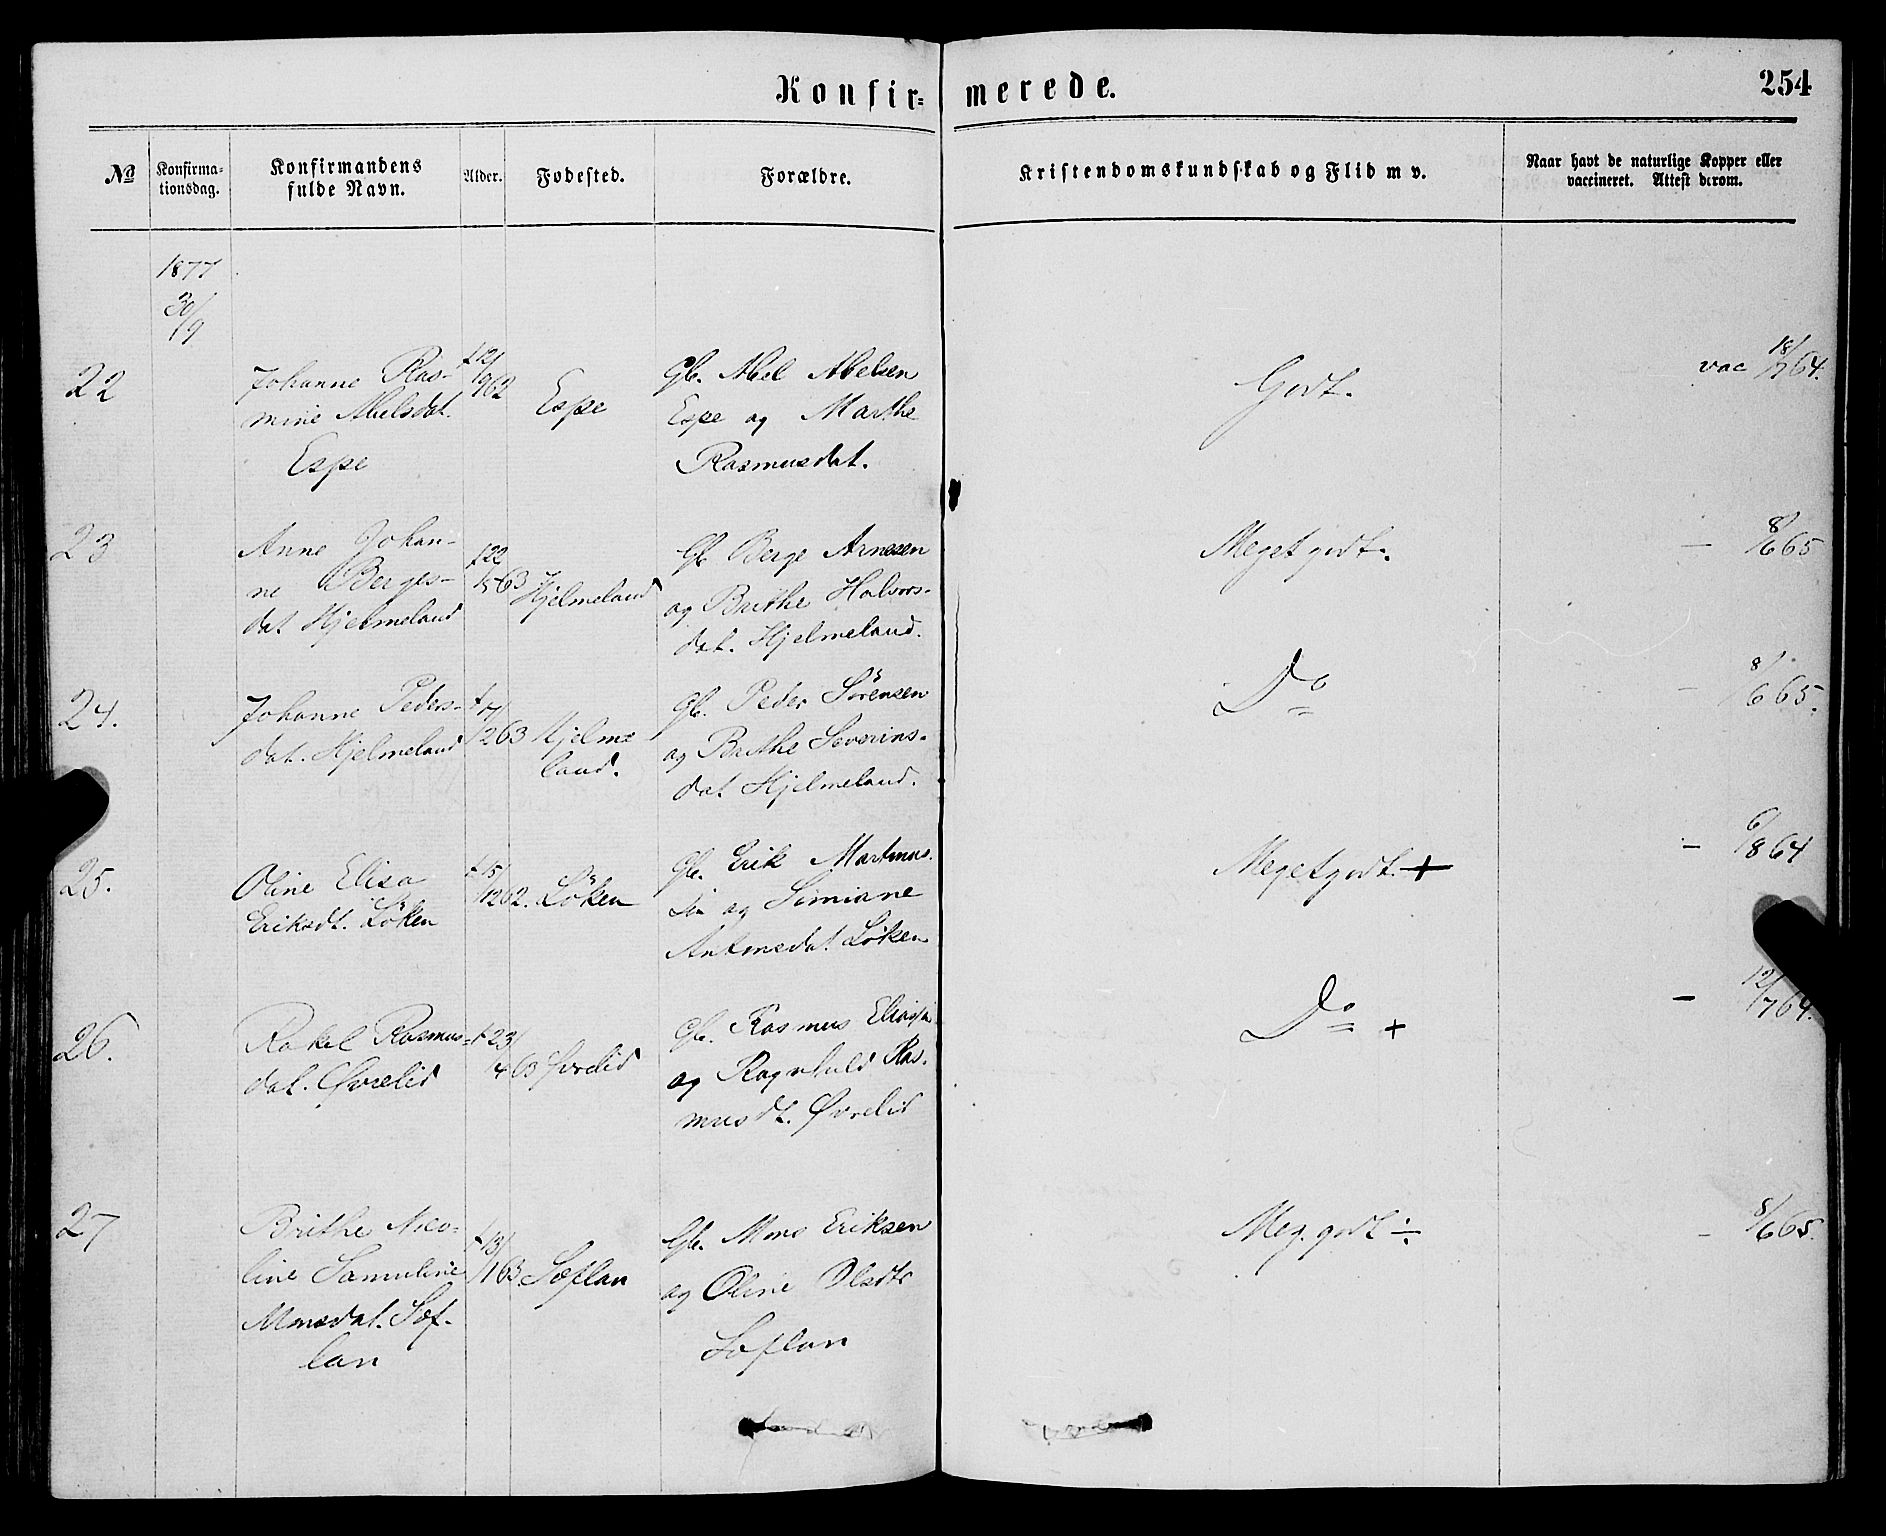 Konfir= merede.
254
No
Konfirma-
tionsdag.
Konfirmandens
fulde Navn.
Alder.
Fødested.
Forældre.
Kristendomskundskab og Flid m v.
Naar havt de naturlige Kopper eller
vaccineret. Attest derom.
1877
30/9
22
Johanne Ras-
mine Abelsdat.
Espe
f 12/9 62
Espe
Gb. Abel Abelsen
Espe og Marthe
Rasmusdat.
Godt.
vac 18/7 64.
23
Anne Johan-
ne Berges-
dat Hjelmeland
f 22/5 63
Hjelmeland
Gb Berge Arnesen
og Brithe Halvors-
dat. Hjelmeland.
Meget godt.
— 8/6 65
24.
Johanne Peders-
dat. Hjelmeland
63
Hjelme
land.
Gb. Peder Sörensen
og Brithe Severins-
dat Hjelmeland.
Do
— 8/6 65.
25.
Oline Elisa
Eriksdt. Löken
f 15/12 62.
Löken
Gb. Erik Martinus.
og Simiane
Löken
Meget godt. +
— 6/8 64
26.
Rakel Rasmus-
dat. Øvrelid
f 23/4 63
Øvrelid
Gb. Rasmus
og Ragnhild Ras-
musdt. Øvrelid
Do +
— 12/7 64.
27
Brithe Nico-
line Samuline
Monsdat. Sæf-
lan
f 13/1 63
Sæflan
Gb. Mons Eriksen
og Oline Olsdtr
Sæflan
Meg. godt ÷
— 8/6 65.